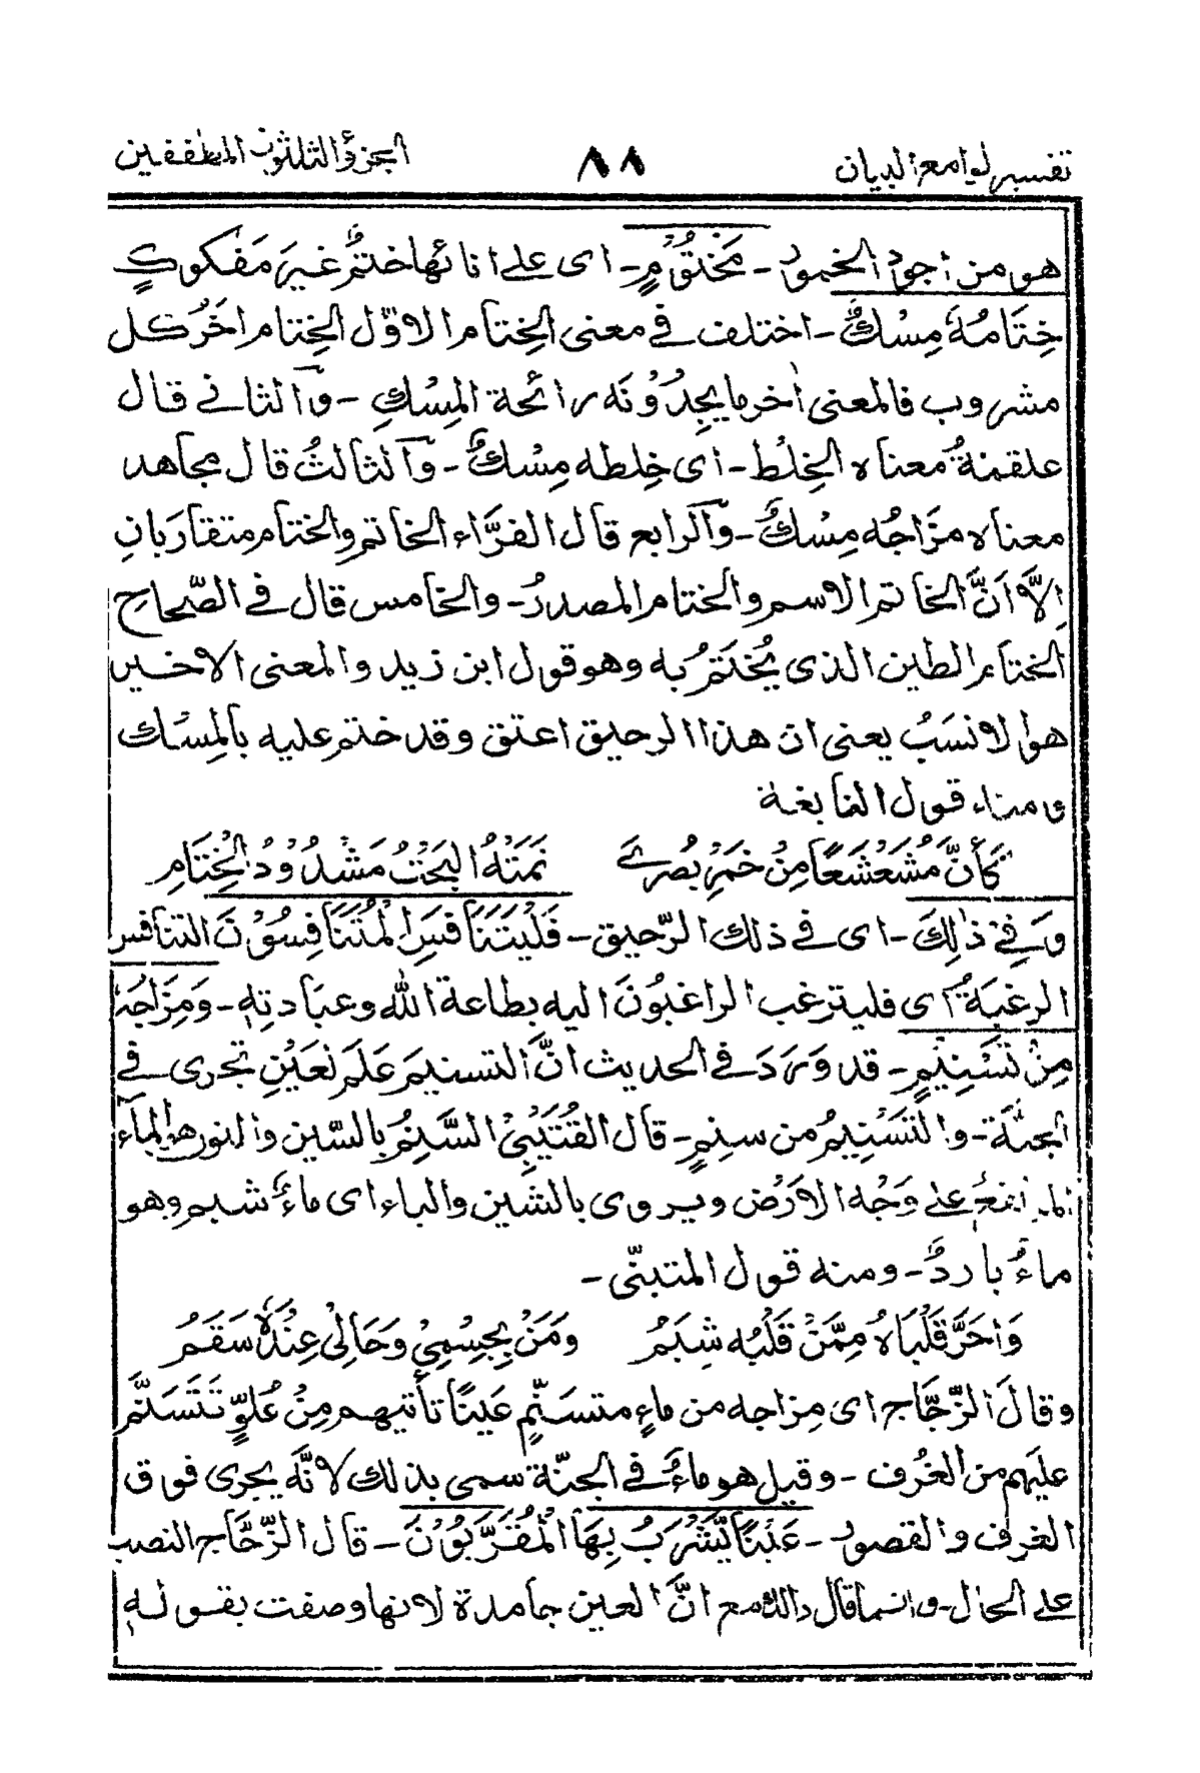 تفسير لوامع البيان ٨٨ الجزؤ الثلثون المطففين
هو من اجود الخمود - مَخْتُوْمٍ - اى على انائها ختمٌ غيرَ مَفكوكٍ
خِتَامُهٗ مِسْكٌ - اختلف فى معنى الخِتام الاوّل الخِتام اٰخرُ كل
مشروب فالمعنى اٰخر ما يجِدُوْنَه رائحة المِسْكِ - وآلثانى قال
علقمةُ معناه الخِلْط - اى خِلطه مِسْكٌ - وآلثالثُ قال مجاهد
معناه مزَاجُه مِسْكٌ - وآلرابع قال الفرَّاء الخاتم والختام متقارَبانِ
اِلاَّ اَنَّ الخاتم الاسم والختام المصدرُ - والخامس قال فى الصّحاحِ
الختام الطين الذى يُختَمُ به وهو قول ابن زيد والمعنى الاخير
هو الانسَبُ يعنى ان هذا الرحيق اعتق وقد ختم عليه بالمِسْك
و منه قول النابغة
كَأَنَّ مُشَعْشَعًا مِنْ خَمْرِ بُصْرٰى نَمَتْهُ البَخْتُ مَشْدُوْدُ الخِتَامِ
وَفِىْ ذٰلِكَ - اى فى ذلك الرّحيق - فَلْيَتَنَافَسِ الْمُتَنَافِسُوْنَ التنافس
الرغبَةُ اى فليترغب الراغبُونَ اليه بطاعة الله وعبادتهٖ - وَمِزَاجُهٗ
مِنْ تَسْنِيْمٍ - قد وَرَدَ فى الحديث انَّ التسنيمَ عَلَم لعَيْنٍ تجرى فى
الجنّة - والتَّسْنِيمُ من سنِمٍ - قال القُتَيْبِىْ السَّنِمُ بالسّين والنون هو الماء
المرتفع على وَجْه الاَرْض ويروى بالشين والباء اى ماءٌ شبم وهو
ماءٌ باردٌ - ومنه قول المتبنّى -
وَاحَرَّ قَلْبَاهُ مِمَّنْ قَلْبُه شِبَمُ ومَنْ بِجِسْمِىْ وَحَالِىْ عِنْدَهٗ سَقَمُ
وقالَ الزّجَّاج اى مِزاجه من ماءٍ متسَنّمٍ عَيْنًا تأتيهم مِنْ عُلوٍّ تَتَسَنَّم
عليهم من الغُرُف - وقيل هو ماءٌ فى الجنّة سمى بذلك لانَّه يجرى فوق
الغرف والقصود - عَيْنًا يَّشْرَبُ بِهَا الْمُقَرَّبُوْنَ - قال الزّجَّاج النصب
على الحال - وانما قال ذالك مع انَّ العين جامدة لانها وصفت بقوله